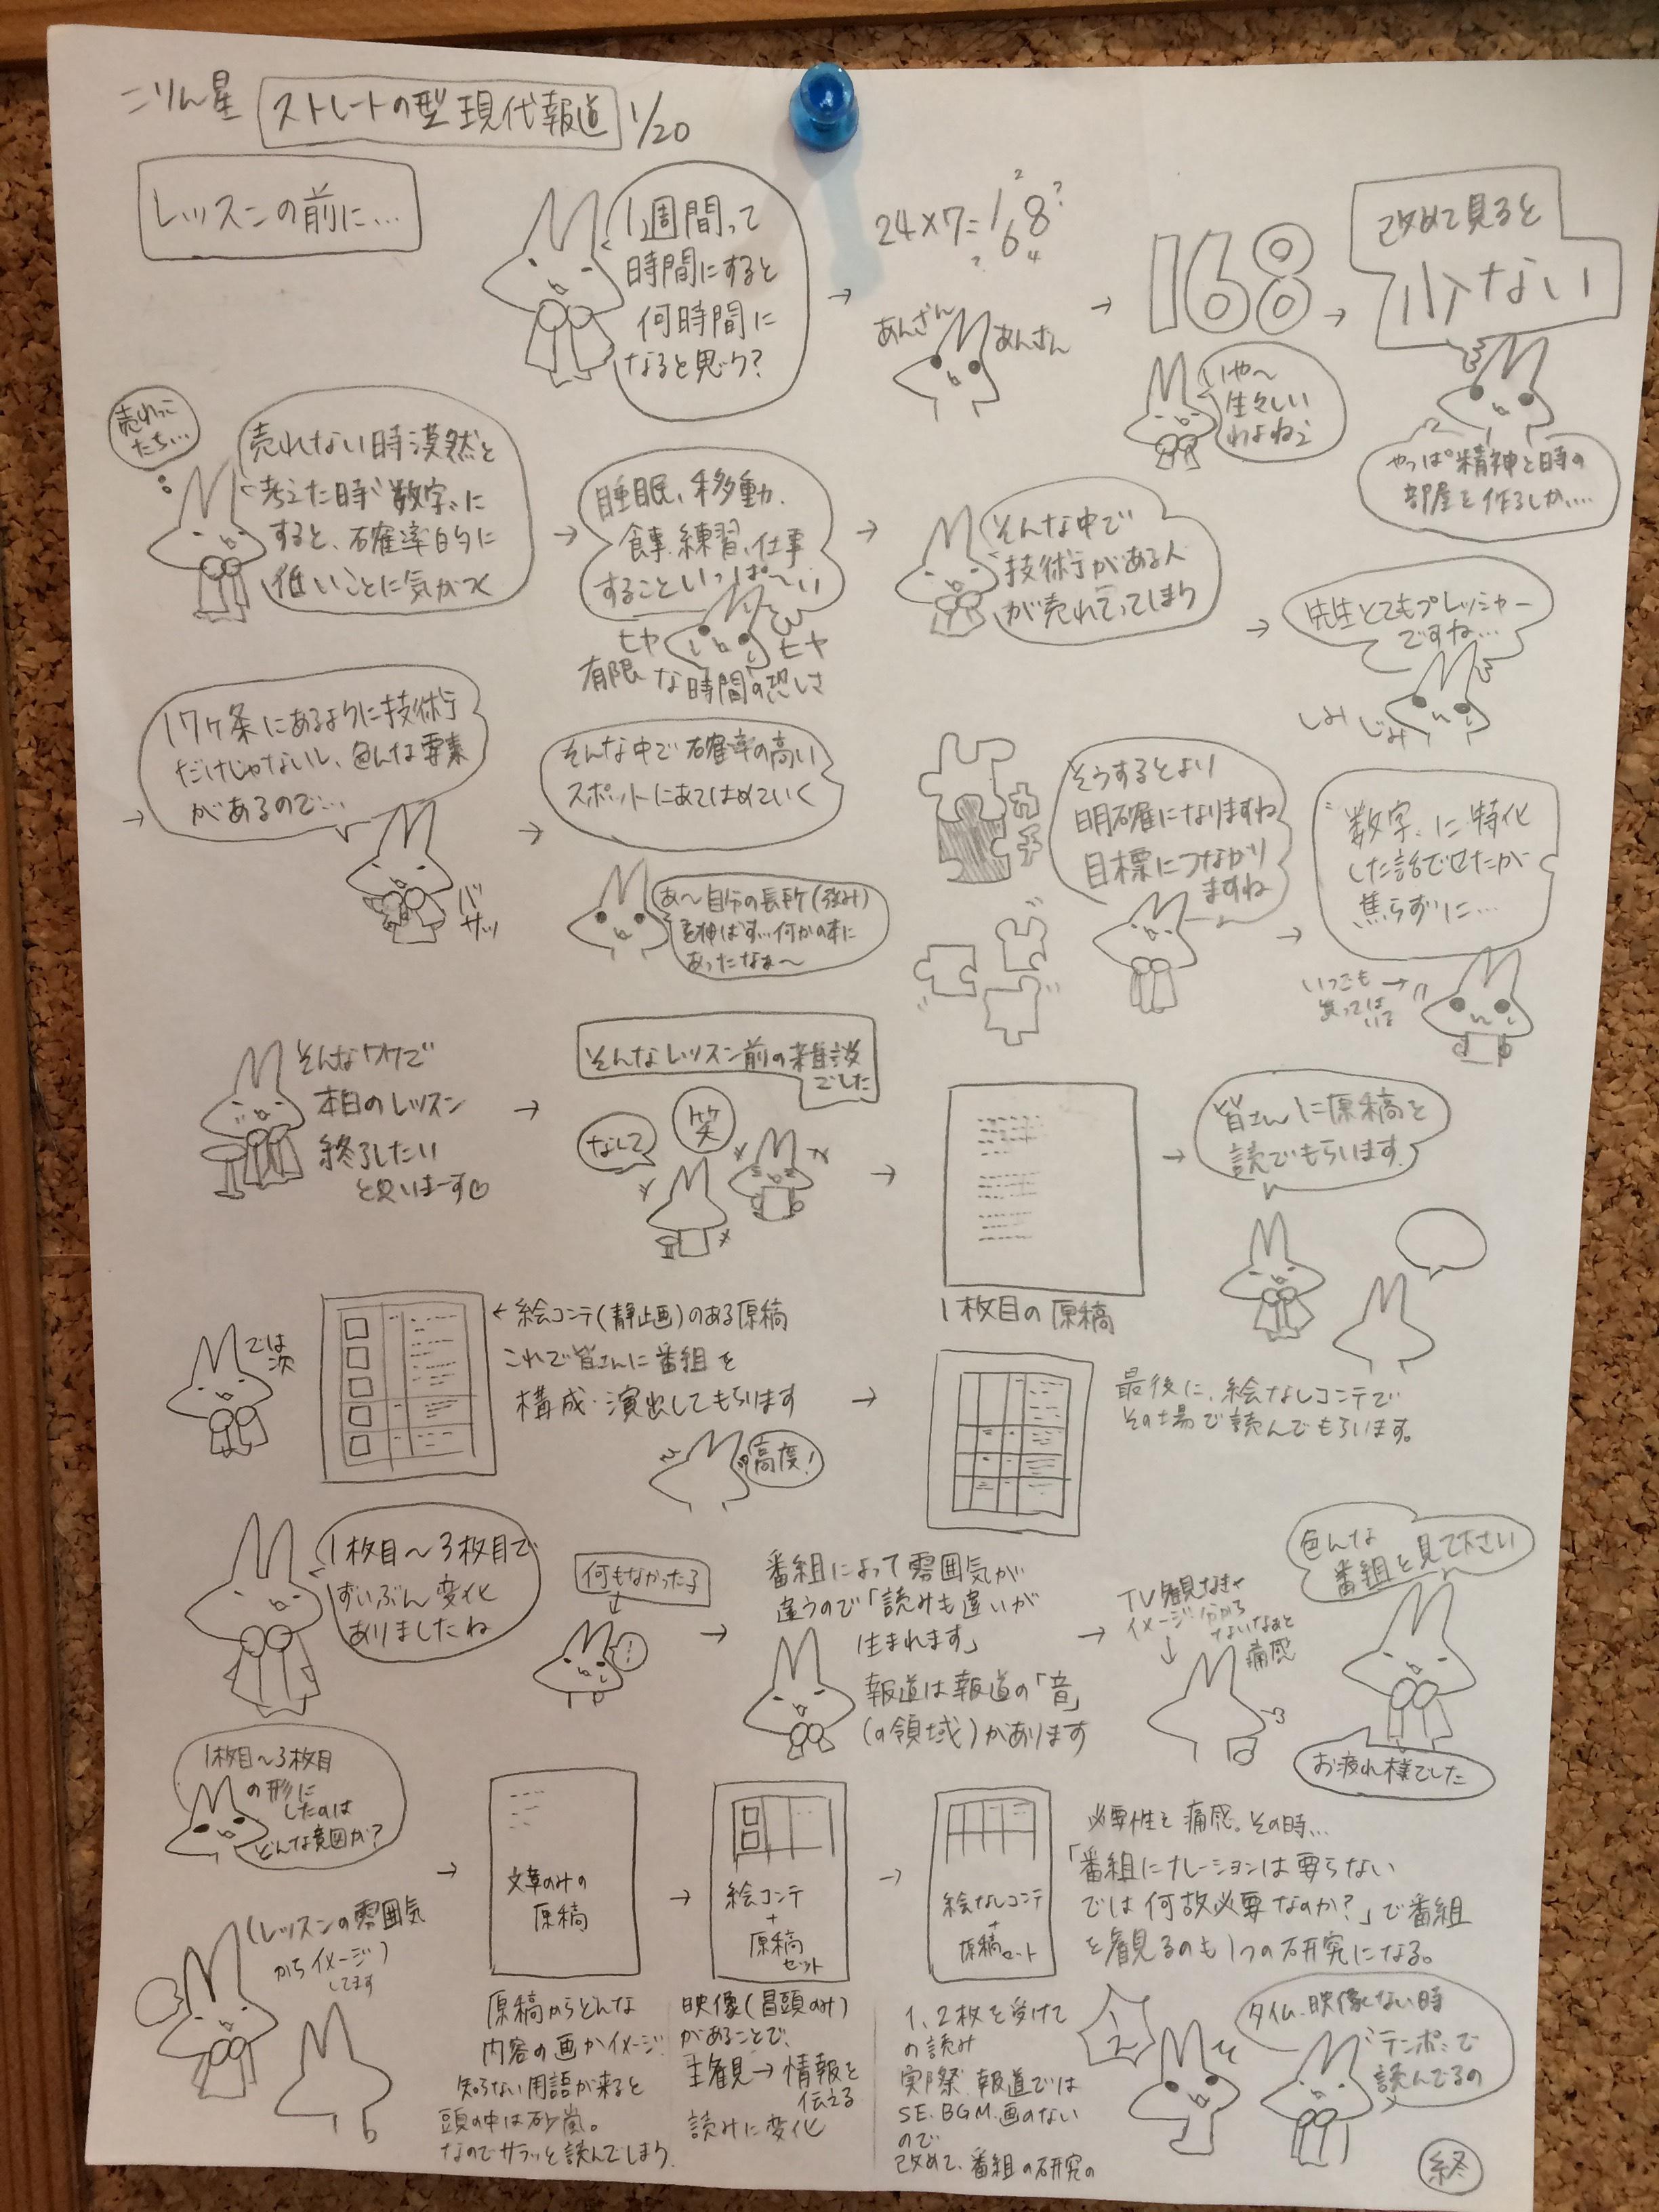 こりん星 ストレートの型 現代報道 1/20
レッスンの前に…
1週間って
時間にすると
何時間に
なると思う?
24×7=168?
あんざん
あんざん
168
いや〜
生々しい
わよね
改めて見ると
少ない
やっぱ精神と時の
部屋を作るしか…
売れっこ
たち…
売れない時漠然と
考えた時〝数字〟に
すると、確率的に
低いことに気がつく
睡眠、移動、
食事、練習、仕事
することいっぱ〜い
ヒヤ
ヒヤ
有限な時間の恐しさ
そんな中で
技術がある人
が売れてってしまう
先生とてもプレッシャー
ですね…
しみじみ
17ヶ条にあるように技術
だけじゃないし、色んな要素
があるので…
バサッ
そんな中で確率の高い
スポットにあてはめていく
あ〜自分の長所(強み)
を伸ばす…何かの本に
あったなぁ〜
そうするとより
明確になりますね
目標につながり
ますね
〝数字〟に特化
した話でしたが
焦らずに…
いつも
笑っては
いる
そんなワケで
本日のレッスン
終了したい
と思いまーす♡
そんなレッスン前の雑談
でした
なして
笑
1枚目の原稿
皆さんに原稿を
読でもらいます
では
次
←絵コンテ(静止画)のある原稿
これで皆さんに番組を
構成・演出してもらります
高度!
最後に、絵なしコンテで
その場で読んでもらいます。
1枚目〜3枚目で
ずいぶん変化
ありましたね
何もなかった子
!
番組によって雰囲気が
違うので「読みも違いが
生まれます」
報道は報道の「音」
(の領域)があります
TV観なきゃ
イメージ分から
ないなぁと
痛感
色んな
番組を見て下さい
お疲れ様でした
1枚目〜3枚目
の形に
したのは
どんな意図か?
(レッスンの雰囲気
からイメージ)
してます
文章のみの
原稿
原稿からどんな
内容の画かイメージ
知らない用語が来ると
頭の中は砂嵐。
なのでサラッと読んでしまう
絵コンテ
+
原稿
セット
映像(冒頭のみ)
があることで、
主観→情報を
伝える
読みに変化
絵なしコンテ
+
原稿セット
1、2枚を受けて
の読み
実際、報道では
SE.BGM.画のない
ので
改めて、番組の研究の
必要性を痛感。その時…
「番組にナレーションは要らない
では何故必要なのか?」で番組
を観るのも1つの研究になる。
1/2
タイム、映像しない時
〝テンポ〟で
読んでるの
終